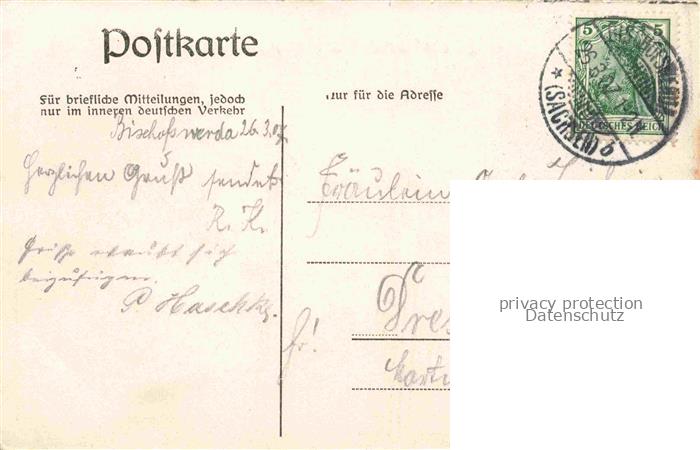 Postkarte
Für briefliche Mitteilungen, jedoch
nur im inneren deutschen Verkehr
Nur für die Adresse
5 5
DEUTSCHES REICH
BISCHOFSWERDA
(SACHSEN)
Bischofswerda 26.3.07
Herzlichen Gruß sendet
R. K.
Grüße erlaubt sich
beizufügen
P. Haschke.
Fräulein
Dres
fr!
privacy protection
Datenschutz